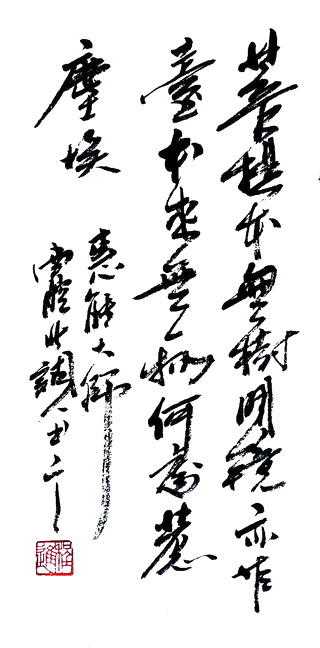 菩提本無樹明鏡亦非
臺本來無一物何處惹
塵埃
惠能大師